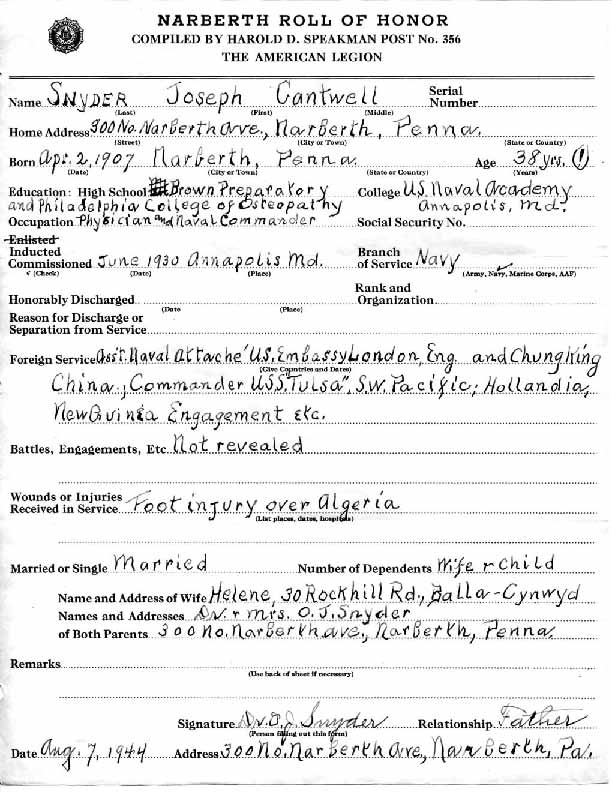 NARBERTH ROLL OF HONOR
COMPILED BY HAROLD D. SPEAKMAN POST No. 356
THE AMERICAN LEGION
Name SNYDER Joseph Cantwell Serial Number
(Last) (First) (Middle)
Home Address 300 No. Narberth Ave., Narberth, Penna.
(Street) (City or Town) (State or Country)
Born Apr. 2, 1907 Narberth, Penna. Age 38 yrs. (!)
(Date) (City or Town) (State or Country) (Years)
Education: High School Brown Preparatory College U.S. Naval Academy
and Philadelphia College of Osteopathy Annapolis, Md.
Occupation Physician and Naval Commander Social Security No.
Enlisted
Inducted
Commissioned June 1930 Annapolis Md. Branch of Service Navy
√ (Check) (Date) (Place) (Army, Navy, Marine Corps, AAF)
Honorably Discharged Rank and Organization
(Date (Place)
Reason for Discharge or
Separation from Service
Foreign Service Ass't. Naval Attache' U.S. Embassy London, Eng. and Chungking
(Give Countries and Dates)
China., Commander USS "Tulsa", S.W. Pacific; Hollandia,
New Guinea Engagement etc.
Battles, Engagements, Etc. Not revealed
Wounds or Injuries
Received in Service Foot injury over Algeria
(List places, dates, hospitals)
Married or Single Married Number of Dependents Wife & Child
Name and Address of Wife Helene, 30 Rockhill Rd., Balla-Cynwyd
Names and Addresses Dr. & Mrs. O.J. Snyder
of Both Parents 300 No. Narberth Ave., Narberth, Penna.
Remarks
(Use back of sheet if necessary)
Signature Dr. O.J. Snyder Relationship Father
(Person filling out this form)
Date Aug. 7, 1944 Address 300 No. Narberth Ave, Narberth, Pa.